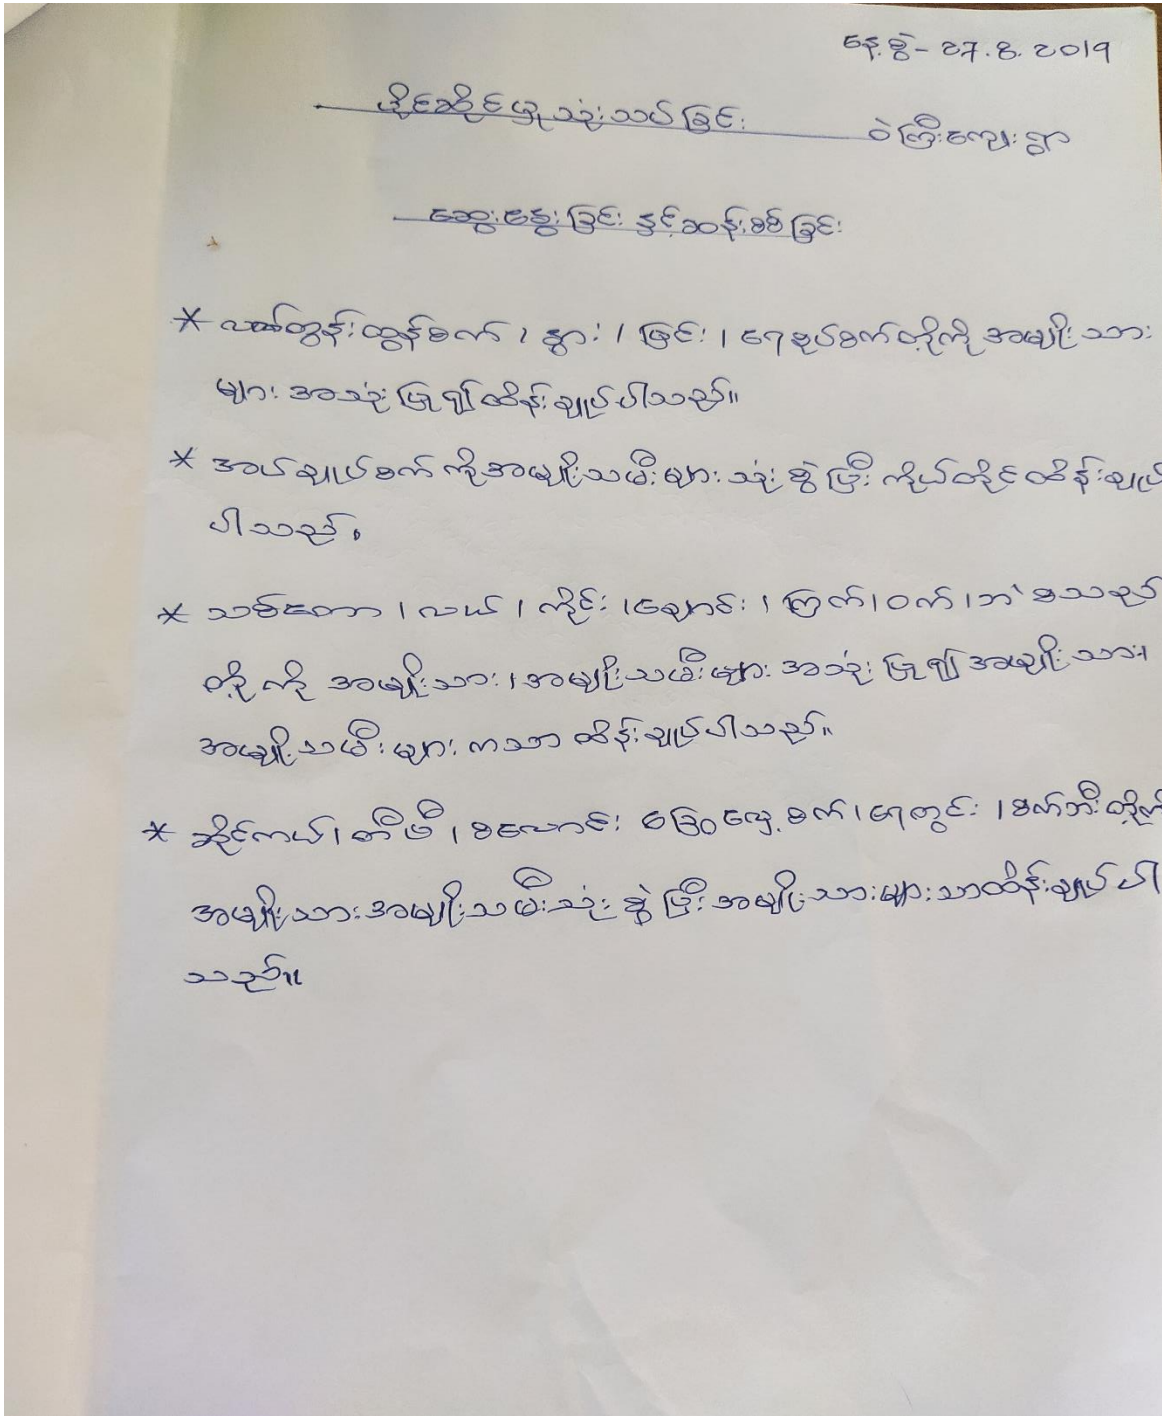 နေ့စွဲ- 27.8.2019
ပိုင်ဆိုင်မှု သုံးသပ်ခြင်း
ဝဲကြီးကျေးရွာ
ဆွေးနွေးခြင်း နှင့်ဆန်းစစ်ခြင်း
* လက်တွန်းထွန်စက် ၊ နွား ၊ မြင်း ၊ ရေစုပ်စက်တို့ကို အမျိုးသား
များ အသုံးပြု၍ ထိန်းချုပ်ပါသည်။
* အပ်ချုပ်စက် ကိုအမျိုးသမီးများ သုံးစွဲပြီး ကိုယ်တိုင်ထိန်းချုပ်
ပါသည်။
* သစ်တော ၊ လယ် ၊ ကိုင်း ၊ချောင်း ၊ ကြက်၊ဝက်၊ဘဲ စသည်
တို့ ကို အမျိုးသား ၊အမျိုးသမီးများ အသုံးပြု၍ အမျိုးသား၊
အမျိုးသမီးများ ကသာ ထိန်းချုပ်ပါသည်။
* ဆိုင်ကယ်၊ တီဗီ ၊ စလောင်း ခြွေလှေ့စက်၊ ရေတွင်း ၊စက်ဘီးတို့ကို
အမျိုးသားအမျိုးသမီးသုံးစွဲပြီးအမျိုးသားများသာထိန်းချုပ်ပါ
သည်။